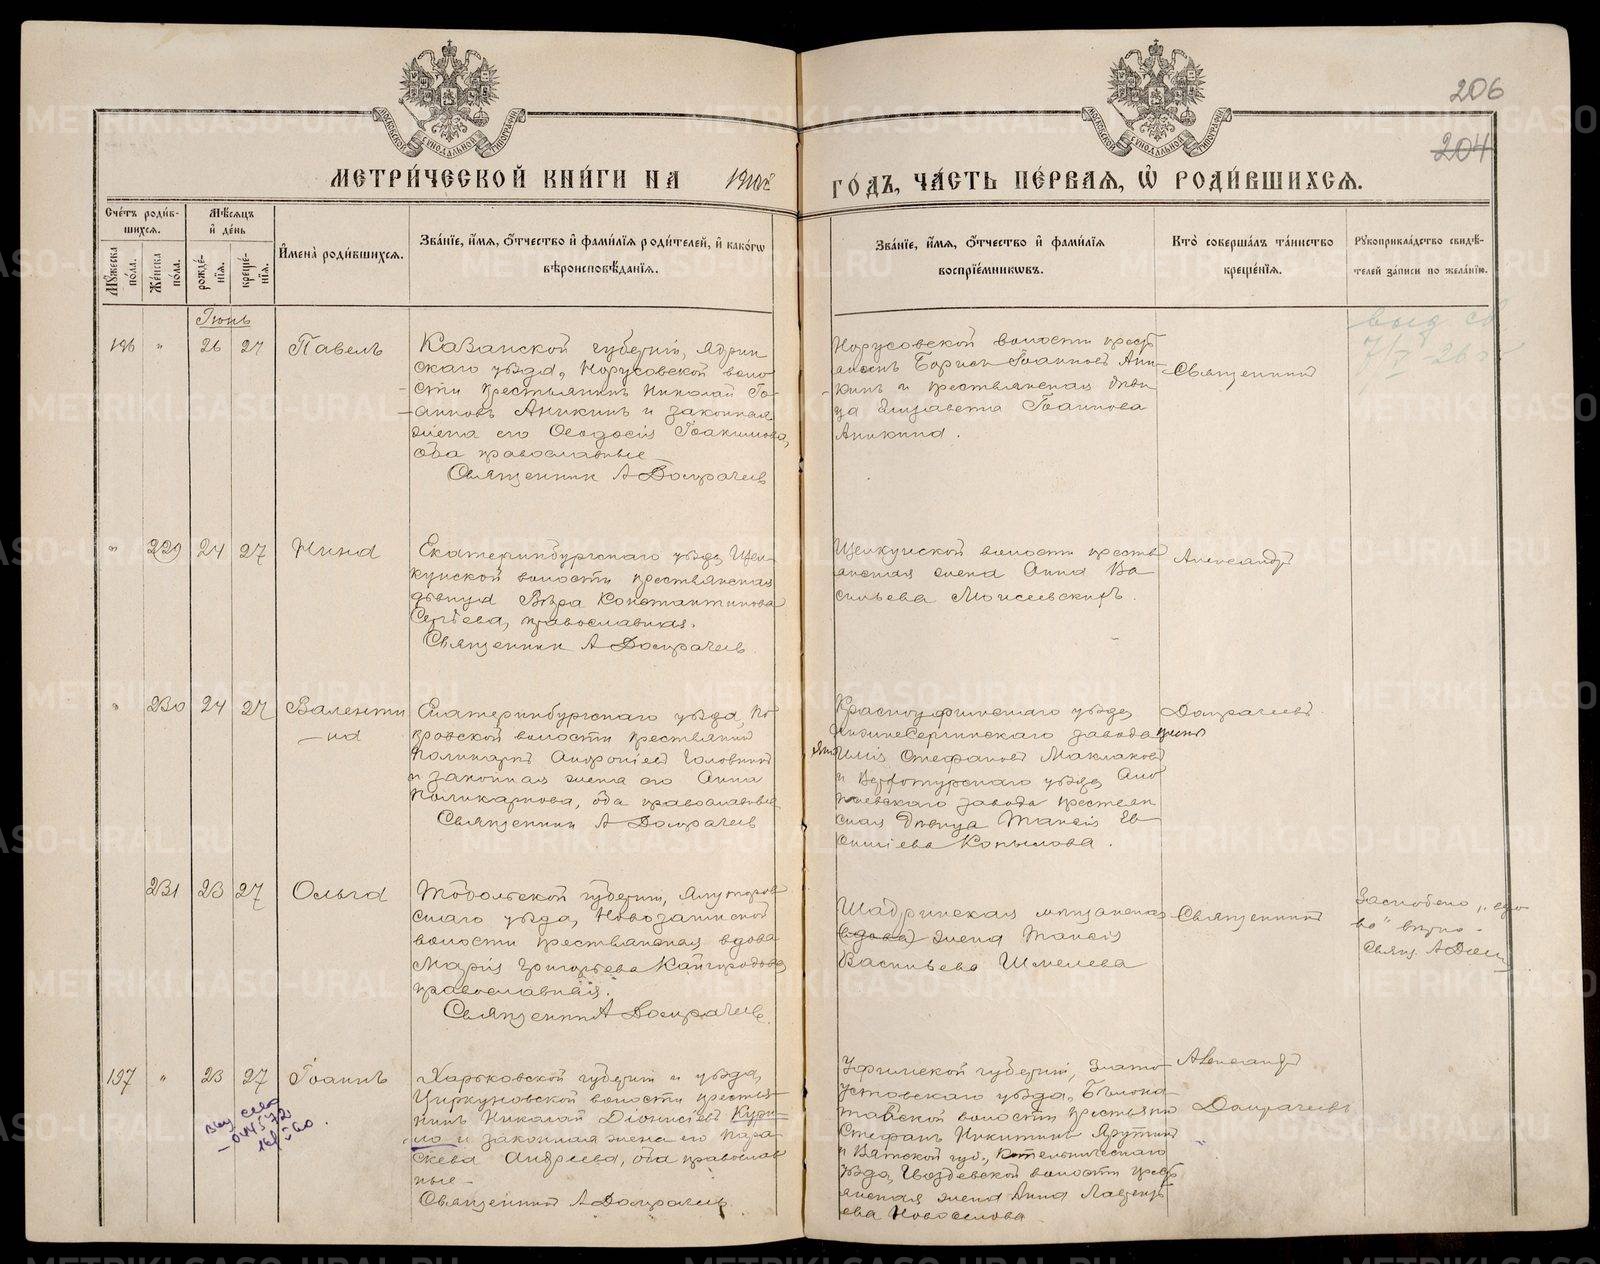 206
204
МЕТРИ́ЧЕСКОЙ КНИ́ГИ НА 1910й ГО́ДЪ, ЧА́СТЬ ПЕ́РВАЯ, Ѿ РОДИ́ВШИХСЯ.
Сче́тъ роди́в-
шихся.
Мꙋ́жеска по́ла.
Же́нска по́ла.
Мѣ́сяцъ
и де́нь
рожде́-
нїя.
креще́-
нїя.
Имена̀ роди́вшихся.
Зва́нїе, и́мя, о́тчество и фами́лїя роди́телей, и како́гѡ
вѣроисповѣ́данїя.
Зва́нїе, и́мя, о́тчество и фами́лїя
воспрїе́мниковъ.
Кто̀ соверша́лъ та́инство
креще́нїя.
Рꙋкоприкла́дство свидѣ́-
телей за́писи по жела́нїю.
Іюнь
196 " 26 27 Павелъ
Казанской губерніи, Ядрин
скаго уѣзда, Норусовской воло
сти крестьянинъ Николай Іо-
анновъ Аникинъ и законная
жена его Ѳеодосія Іоакимова,
оба православные
Священник А Домрачевъ
Норусовской волости крест
янинъ Борисъ Іоанновъ Ани-
кинъ и крестьянская дѣви
ца Елизавета Іоаннова
Аникина.
Священник
7/V-26 г
" 229 24 27 Нина
Екатеринбургскаго уѣзда Щел
кунской волости крестьянская
дѣвица Вѣра Константинова
Сергѣева, православная.
Священник А Домрачевъ
Щелкунской волости кресть
янская жена Анна Ва
сильева Моисеевскихъ.
Александръ
" 230 24 27 Валенти
на
Екатеринбургскаго уѣзда, По
кровской волости крестьянин
Поликарпъ Андроніев Головин
и законная жена его Анна
Поликарпова, оба православные
Священник А Домрачевъ
Красноуфимскаго уѣзда
НижнеСергинскаго завода
Илія Стефановъ Маклаковъ
и Верхотурскаго уѣзда, Ала
паевскаго завода крестьян
ская дѣвица Таисія Ев
Копылова.
Домрачевъ
231 23 27 Ольга
Тобольской губерніи, Ялуторов
скаго уѣзда, Новозаимской
волости крестьянская вдова
Марія Григорьева Кайгородова
православная.
Священник А Домрачевъ.
Шадринская мѣщанская
(вдова) жена Таисія
Васильева Шмелева
Священник
во" вѣрно.
Свящ. А Дом
197 " 23 27 Іоаннъ
Харьковской губерніи и уѣзда,
Циркуновской волости крестья-
нинъ Николай Діонисіевъ Кури-
ло и законная жена его Пара-
скева Андреева, оба православ
ные
Священник А Домрачевъ
Уфимской губерніи, Злато-
устовскаго уѣзда,
волости крестьянин
Стефанъ Никитинъ
и Вятской губ., Котельническаго
уѣзда, Гвоздевской волости крест
янская жена Анна Лаврент
ева Новоселова
Александръ
Домрачевъ